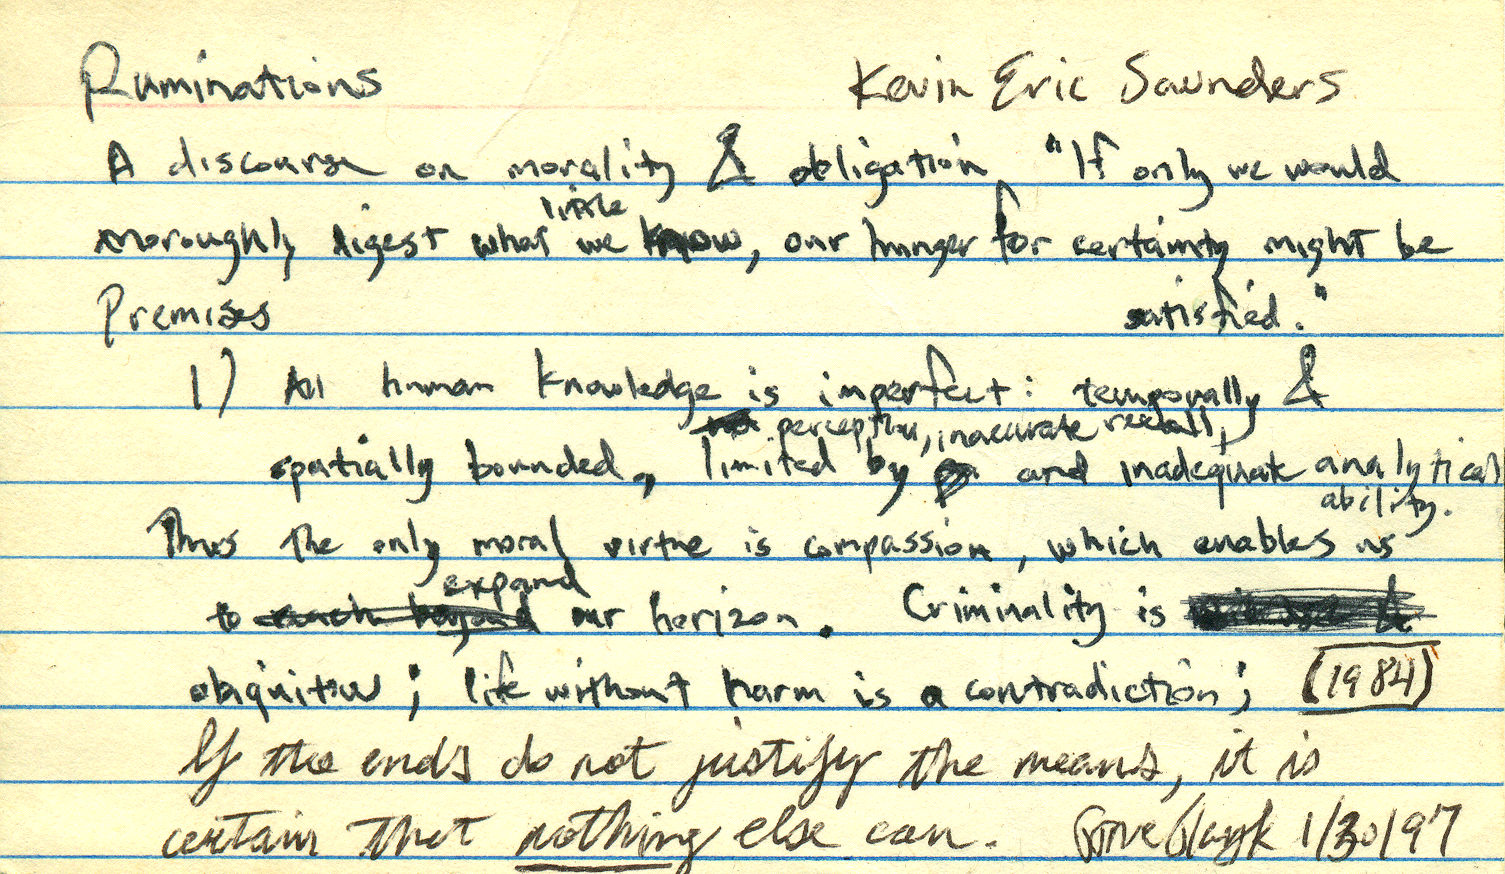 Ruminations Kevin Eric Saunders
A discourse on morality & obligation "If only we would
thoroughly digest what little we know, our hunger for certainty might be
satisfied."
Premises
1) All human knowledge is imperfect: temporally &
spatially bounded, limited by perception, inaccurate recall, and inadequate analytical
ability.
Thus the only moral virtue is compassion, which enables us
to expand our horizon. Criminality is
ubiquitous; life without harm is a contradiction; (1984)
If the ends do not justify the means, it is
certain that nothing else can. 1/30/97